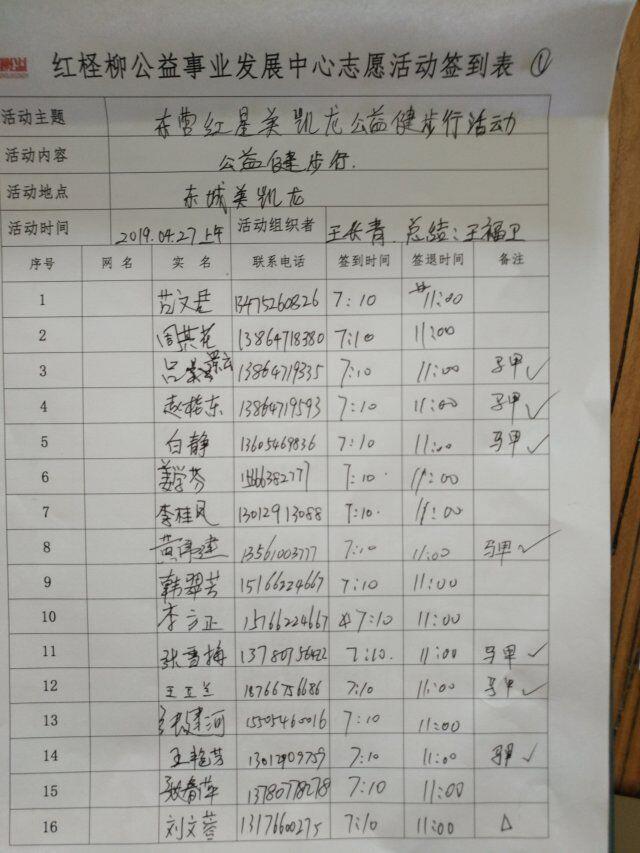 红柽柳公益事业发展中心志愿活动签到表 ①
活动主题 东营红星美凯龙公益健步行活动
活动内容 公益健步行.
活动地点 东城美凯龙
活动时间 2019.04.27上午 活动组织者 王长青. 总结:王福卫
序号 网名 实名 联系电话 签到时间 签退时间 备注
1 13475260826 7:10 11:00
2 周英花 13864718380 7:10 11:00
3 吕景云 13864719335 7:10 11:00 马甲 ✓
4 赵桂东 13864719593 7:10 11:00 马甲 ✓
5 白静 13605469836 7:10 11:00 马甲 ✓
6 姜学芬 7:10 11:00
7 李桂凤 13012913088 7:10 11:00
8 黄伟建 13561003777 7:10 11:00 马甲 ✓
9 韩翠芳 15166224667 7:10 11:00
10 李方正 15766224667 7:10 11:00
11 张雪梅 7:10. 11:00 马甲 ✓
12 王玉兰 18766756686 7:10 11:00 马甲 ✓
13 张建河 15505460016 7:10 11:00
14 王艳芳 13012909759 7:10 11:00 马甲 ✓
15 13780778278 7:10 11:00
16 刘文萱 13176600275 7:10 11:00 △